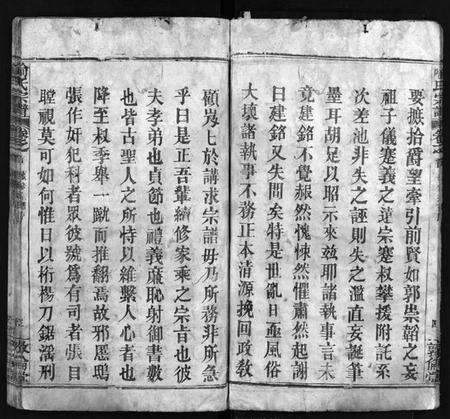 要摭拾爵望牽引前賢如郭崇韜之妄
祖子儀蹇義之
宗蹇叔攀援附託系
次差池非失之誣則失之濫直妄誕筆
墨耳胡足以昭示來茲耶諸執事言未
竟建銘不覺赧然愧悚然懼肅然起謝
曰建銘又失問矣特是世亂日亟風俗
大壞諸執事不務正本清源挽回政教
顧岌岌於講求宗譜毋乃所務非所急
乎曰是正吾輩續修家乘之宗旨也彼
夫孝弟也貞節也禮義廉恥射御書數
也皆古聖人之所恃以維繫人心者也
降至叔季舉一蹴而推翻焉故邪慝鴟
張作奸犯科者眾彼號為有司者張目
瞠視莫可如何惟日以桁楊刀鋸濫刑
氏宗譜
敦倫堂